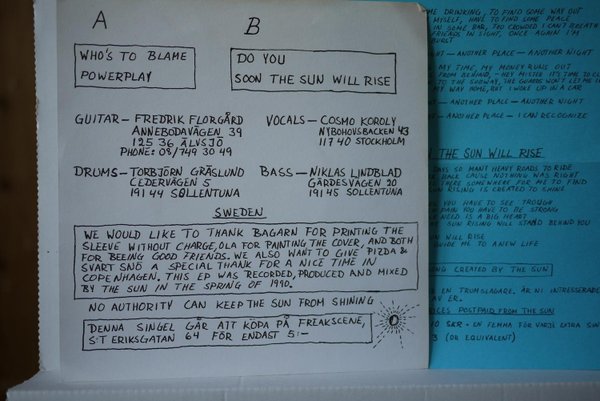 A
B
WHO'S TO BLAME
POWERPLAY
DO YOU
SOON THE SUN WILL RISE
GUITAR – FREDRIK FLORGÅRD
ANNEBODAVÄGEN 39
125 36 ÄLVSJÖ
PHONE: 08/749 30 49
VOCALS – COSMO KOROLY
NYBOHOVSBACKEN 43
117 40 STOCKHOLM
DRUMS – TORBJÖRN GRÄSLUND
CEDERVÄGEN 5
191 44 SOLLENTUNA
BASS – NIKLAS LINDBLAD
GÄRDESVÄGEN 20
191 45 SOLLENTUNA
SWEDEN
WE WOULD LIKE TO THANK BAGARN FOR PRINTING THE
SLEEVE WITHOUT CHARGE, OLA FOR PAINTING THE COVER, AND BOTH
FOR BEEING GOOD FRIENDS. WE ALSO WANT TO GIVE PIZDA &
SVART SNÖ A SPECIAL THANK FOR A NICE TIME IN
COPENHAGEN. THIS EP WAS RECORDED, PRODUCED AND MIXED
BY THE SUN IN THE SPRING OF 1990.
NO AUTHORITY CAN KEEP THE SUN FROM SHINING
DENNA SINGEL GÅR ATT KÖPA PÅ FREAKSCENE,
S:T ERIKSGATAN 64 FÖR ENDAST 5:-
DRINKING, TO FIND SOME WAY OUT
MYSELF, HAVE TO FIND SOME PEACE
IN SOME BAR, TOO CROWDED I CAN'T BREATH
FRIENDS IN SIGHT, ONCE AGAIN I'M
– ANOTHER PLACE – ANOTHER NIGHT
MY TIME, MY MONEY RUNS OUT
FROM BEHIND, – HEY MISTER IT'S TIME TO
TO THE SUBWAY, THE GUARDS WON'T LET ME
MY WAY HOME, BUT I WOKE UP IN A CAR
– ANOTHER PLACE – ANOTHER NIGHT
– ANOTHER PLACE – I CAN RECOGNIZE
THE SUN WILL RISE
SO MANY HEAVY ROADS TO RIDE
CAUSE NOTHING WAS RIGHT
THERE SOMEWHERE FOR ME TO FIND
RISING IS CREATED TO SHINE
YOU HAVE TO SEE TROUGH
PAIN YOU HAVE TO BE STRONG
NEED IS A BIG HEART
THE SUN RISING WILL STAND BEHIND YOU
SUN WILL RISE
GUIDE ME TO A NEW LIFE
CREATED BY THE SUN
EN TRUMSLAGARE. ÄR NI INTRESSERADE
AV ER.
POSTPAID FROM THE SUN
SKR – EN FEMMA FÖR VARJE EXTRA
(OR EQUIVALENT)